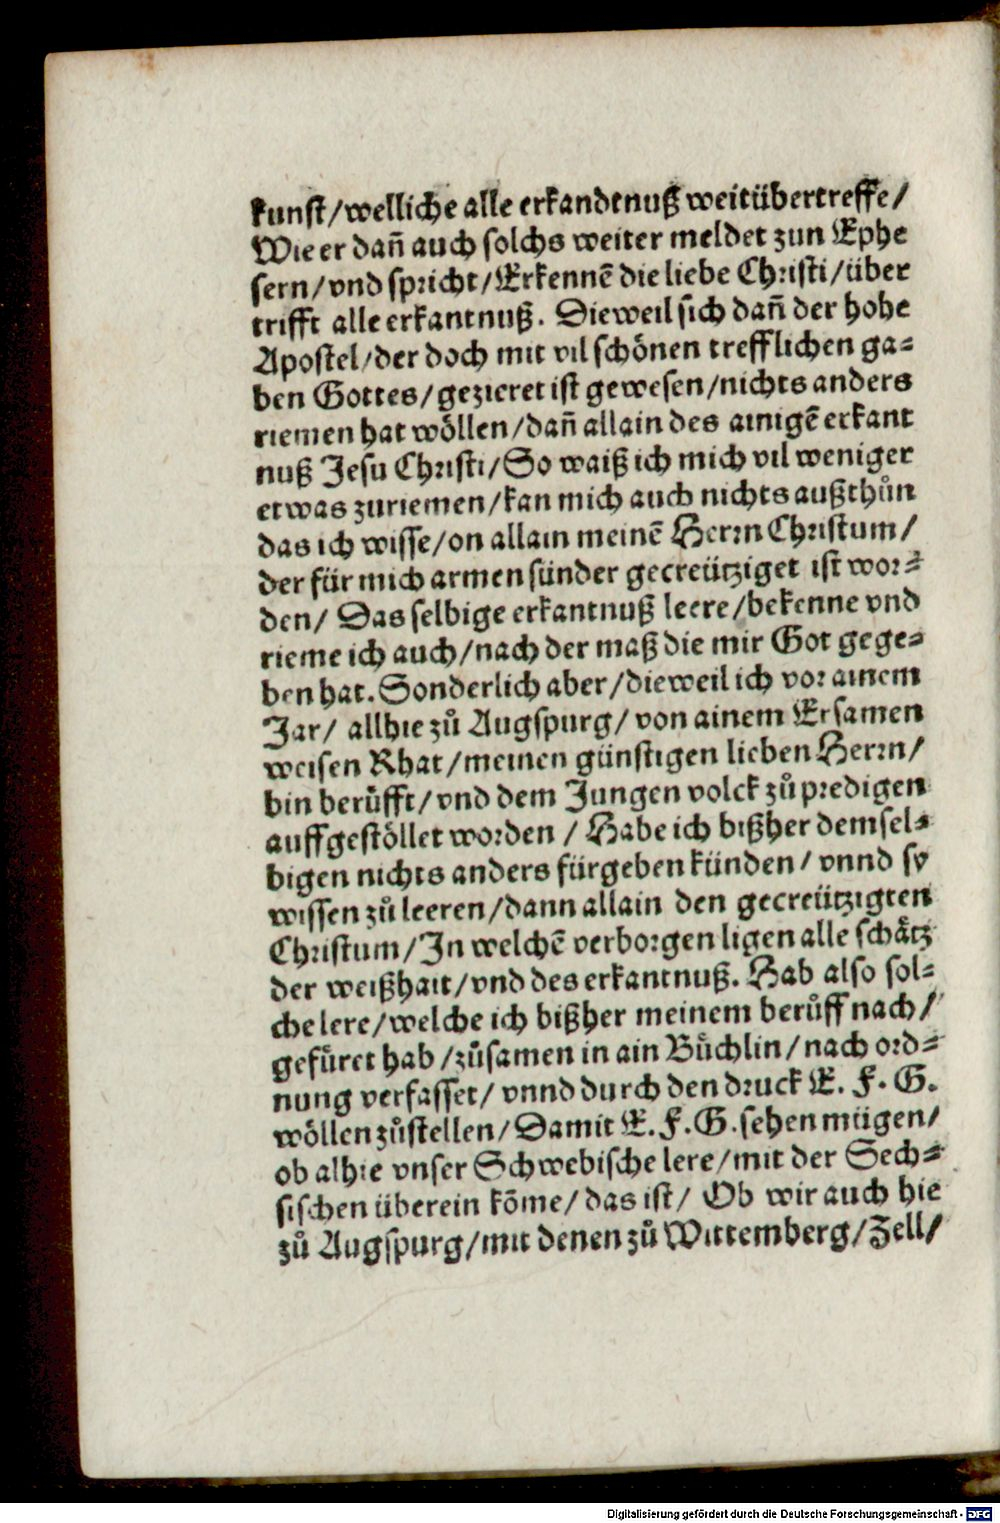 kunst/welliche alle erkandtnuß weitübertreffe/
Wie er dañ auch solchs weiter meldet zun Ephe
sern/vnd spricht/Erkennē die liebe Christi/über
trifft alle erkantnuß. Dieweil sich dañ der hohe
Apostel/der doch mit vil schönen trefflichen ga⸗
ben Gottes/gezieret ist gewesen/nichts anders
riemen hat wöllen/dañ allain des ainigē erkant
nuß Jesu Christi/So waiß ich mich vil weniger
etwas zuriemen/kan mich auch nichts außthůn
das ich wisse/on allain meinē Herrn Christum/
der für mich armen sünder gecreütziget ist wor⸗
den/ Das selbige erkantnuß leere/bekenne vnd
rieme ich auch/nach der maß die mir Got gege⸗
ben hat. Sonderlich aber/dieweil ich vor ainem
Jar/ allhie zů Augspurg/von ainem Ersamen
weisen Rhat/meinen günstigen lieben Herrn/
bin berůfft/vnd dem Jungen volck zů predigen
auffgestöllet worden / Habe ich bißher demsel⸗
bigen nichts anders fürgeben künden/ vnnd sy
wissen zů leeren/dann allain den gecreützigten
Christum/In welchē verborgen ligen alle schätz
der weißhait/vnd des erkantnuß. Hab also sol⸗
che lere/welche ich bißher meinem berůff nach/
gefüret hab/zůsamen in ain Büchlin/nach ord⸗
nung verfasset/ vnnd durch den druck E. F. G.
wöllen zůstellen/Damit E. F. G. sehen mügen/
ob alhie vnser Schwebische lere/mit der Sech⸗
sischen überein kōme/das ist/ Ob wir auch hie
zů Augspurg/mit denen zů Wittemberg/Zell/
Digitalisierung gefördert durch die Deutsche Forschungsgemeinschaft - DFG